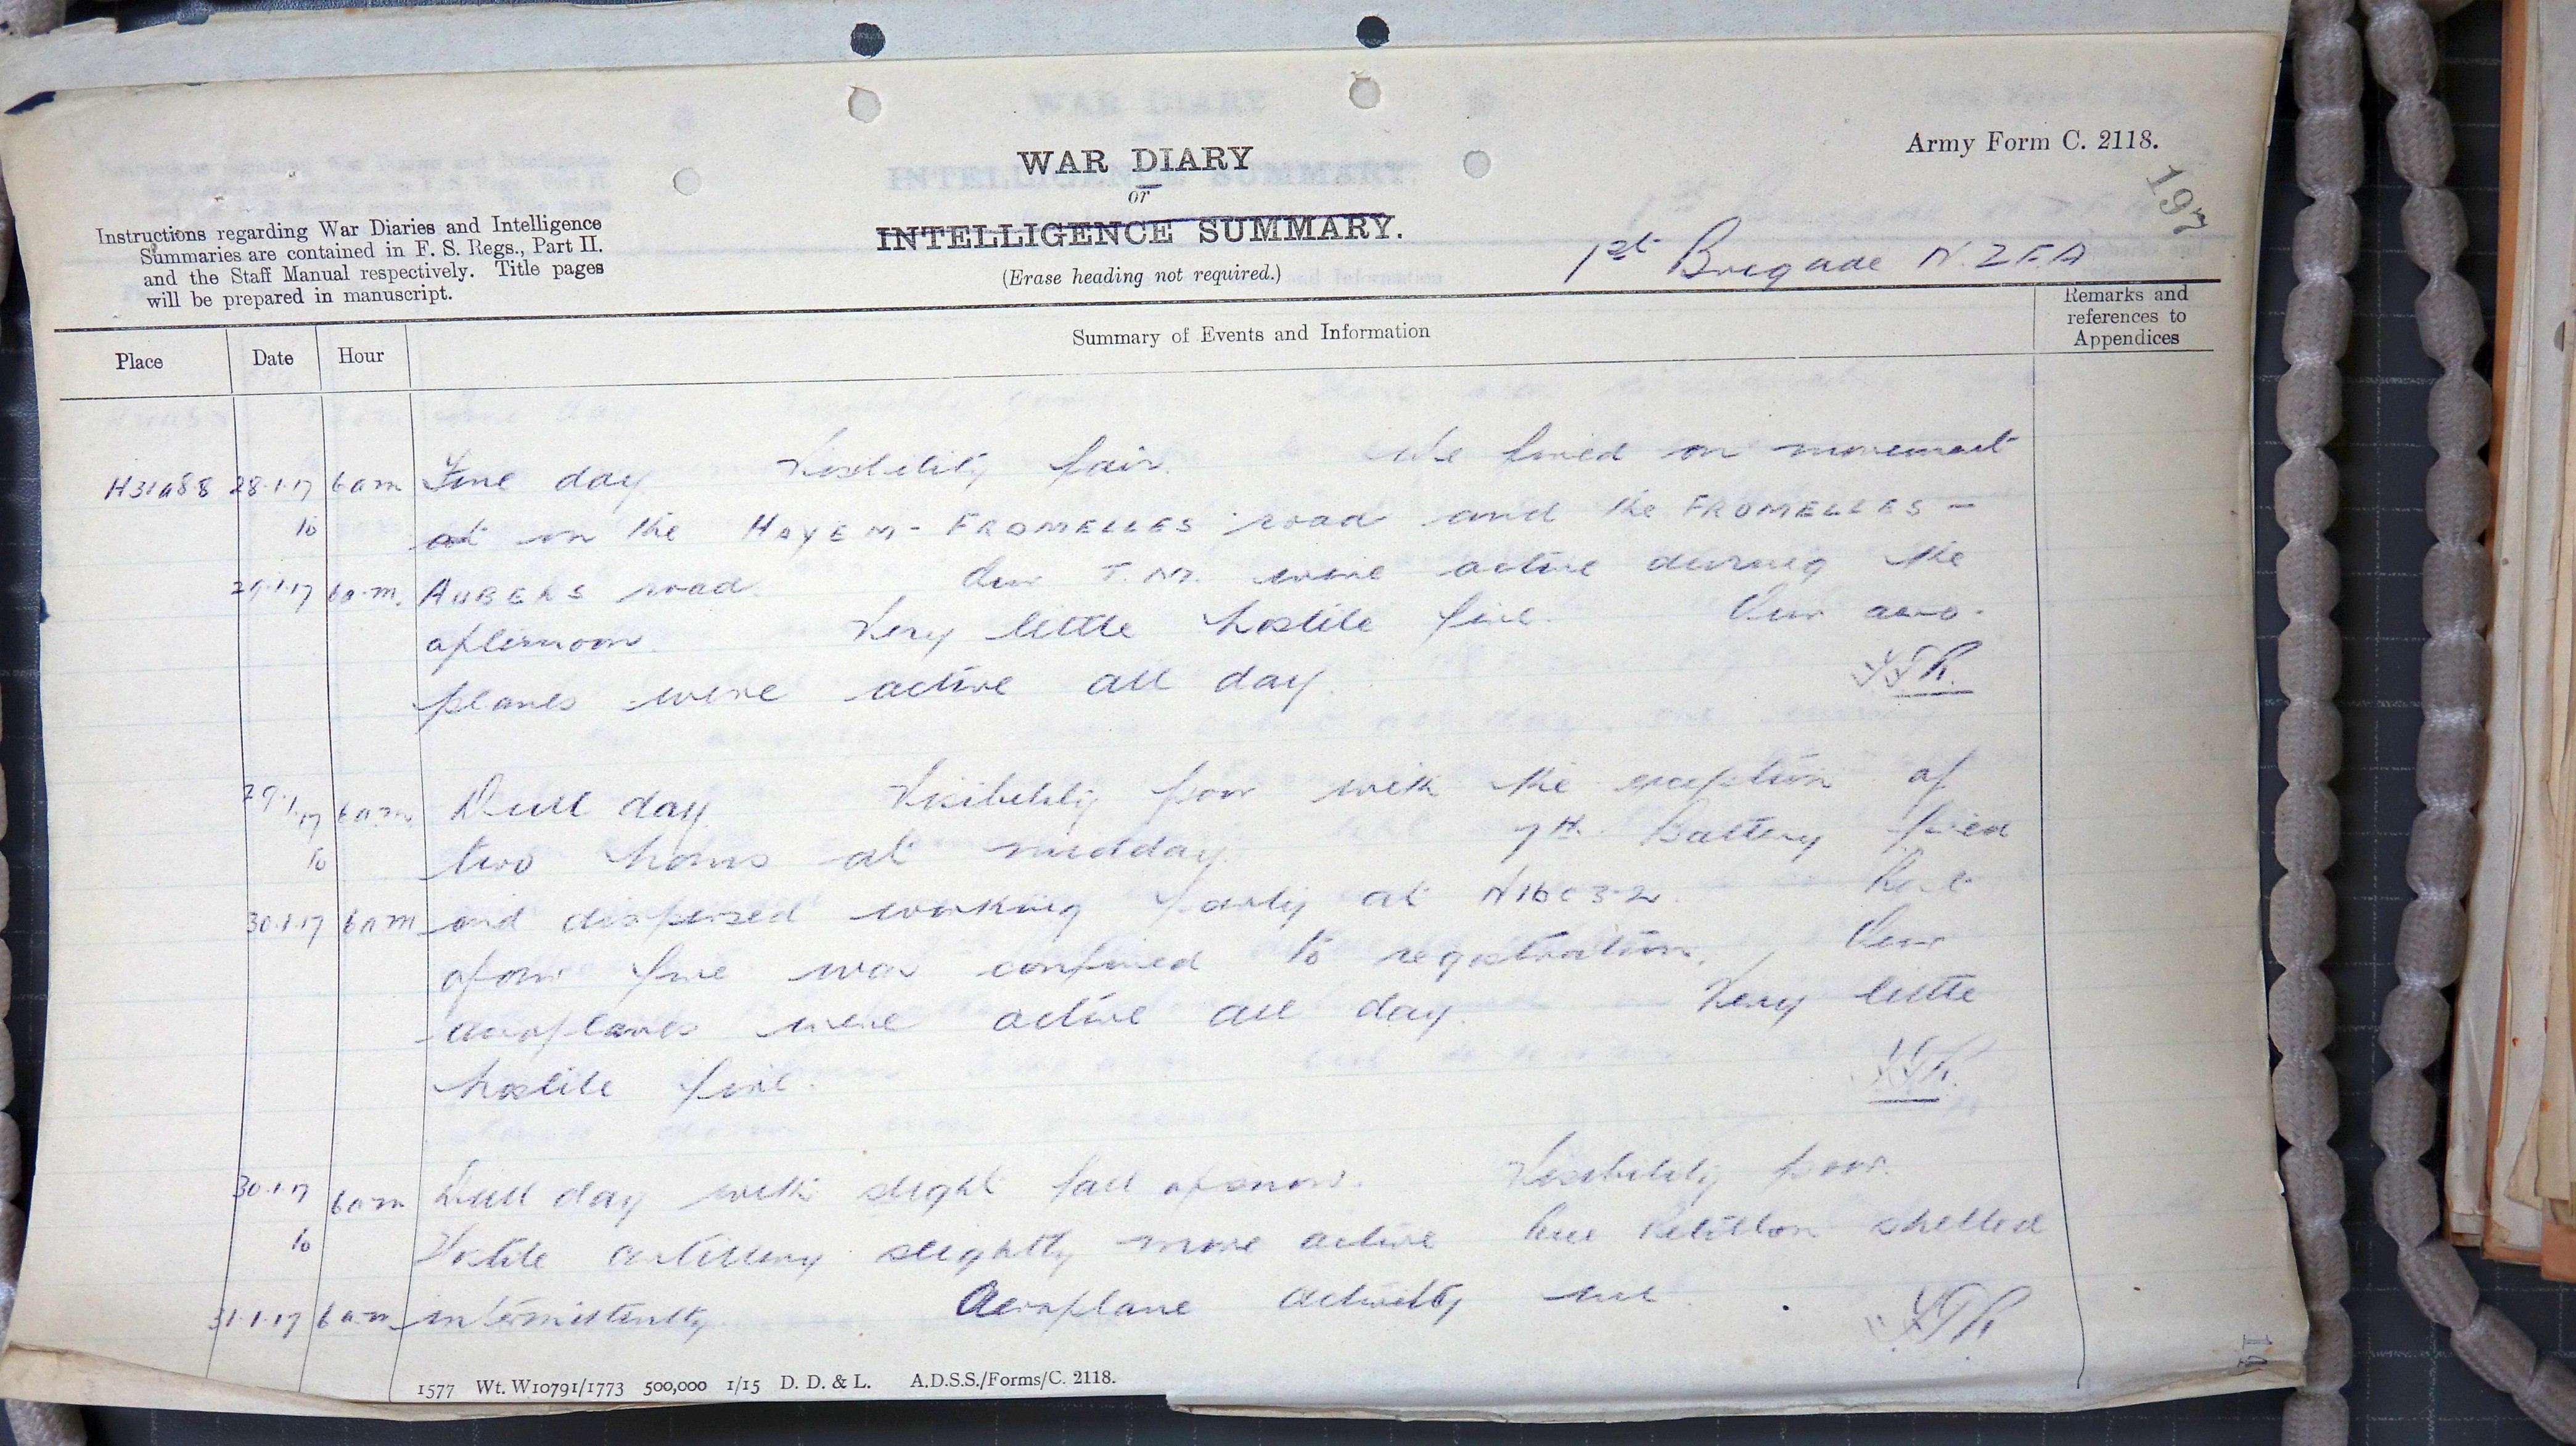 WAR DIARY
or
INTELLIGENCE SUMMARY.
(Erase heading not required.)
Army Form C. 2118.
197
Instructions regarding War Diaries and Intelligence
Summaries are contained in F. S. Regs., Part II.
and the Staff Manual respectively. Title pages
will be prepared in manuscript.
1st Brigade N.Z.F.A
Place Date Hour Summary of Events and Information Remarks and references to Appendices
H31a88 28.1.17 6am Fine day Visibility fair. We fired on movement
to at on the HAYEM - FROMELLES road and the FROMELLES -
29.1.17 6a.m. AUBERS road. Our T.M. were active during the
afternoon. Very little hostile fire. Our aero-
planes were active all day.
29.1.17 6am Dull day. Visibility poor with the exception of
to two hours at midday. 7th Battery fired
30.1.17 6am and dispersed working party at N16c32. Rest
of our fire was confined to registration. Our
aeroplanes were active all day. Very little
hostile fire.
30.1.17 6am Dull day with slight fall of snow. Visibility poor.
to Hostile artillery slightly more active Rue Petillon shelled
31.1.17 6am intermittently Aeroplane activity nil.
1577 Wt. W10791/1773 500,000 1/15 D. D. & L. A.D.S.S./Forms/C. 2118.